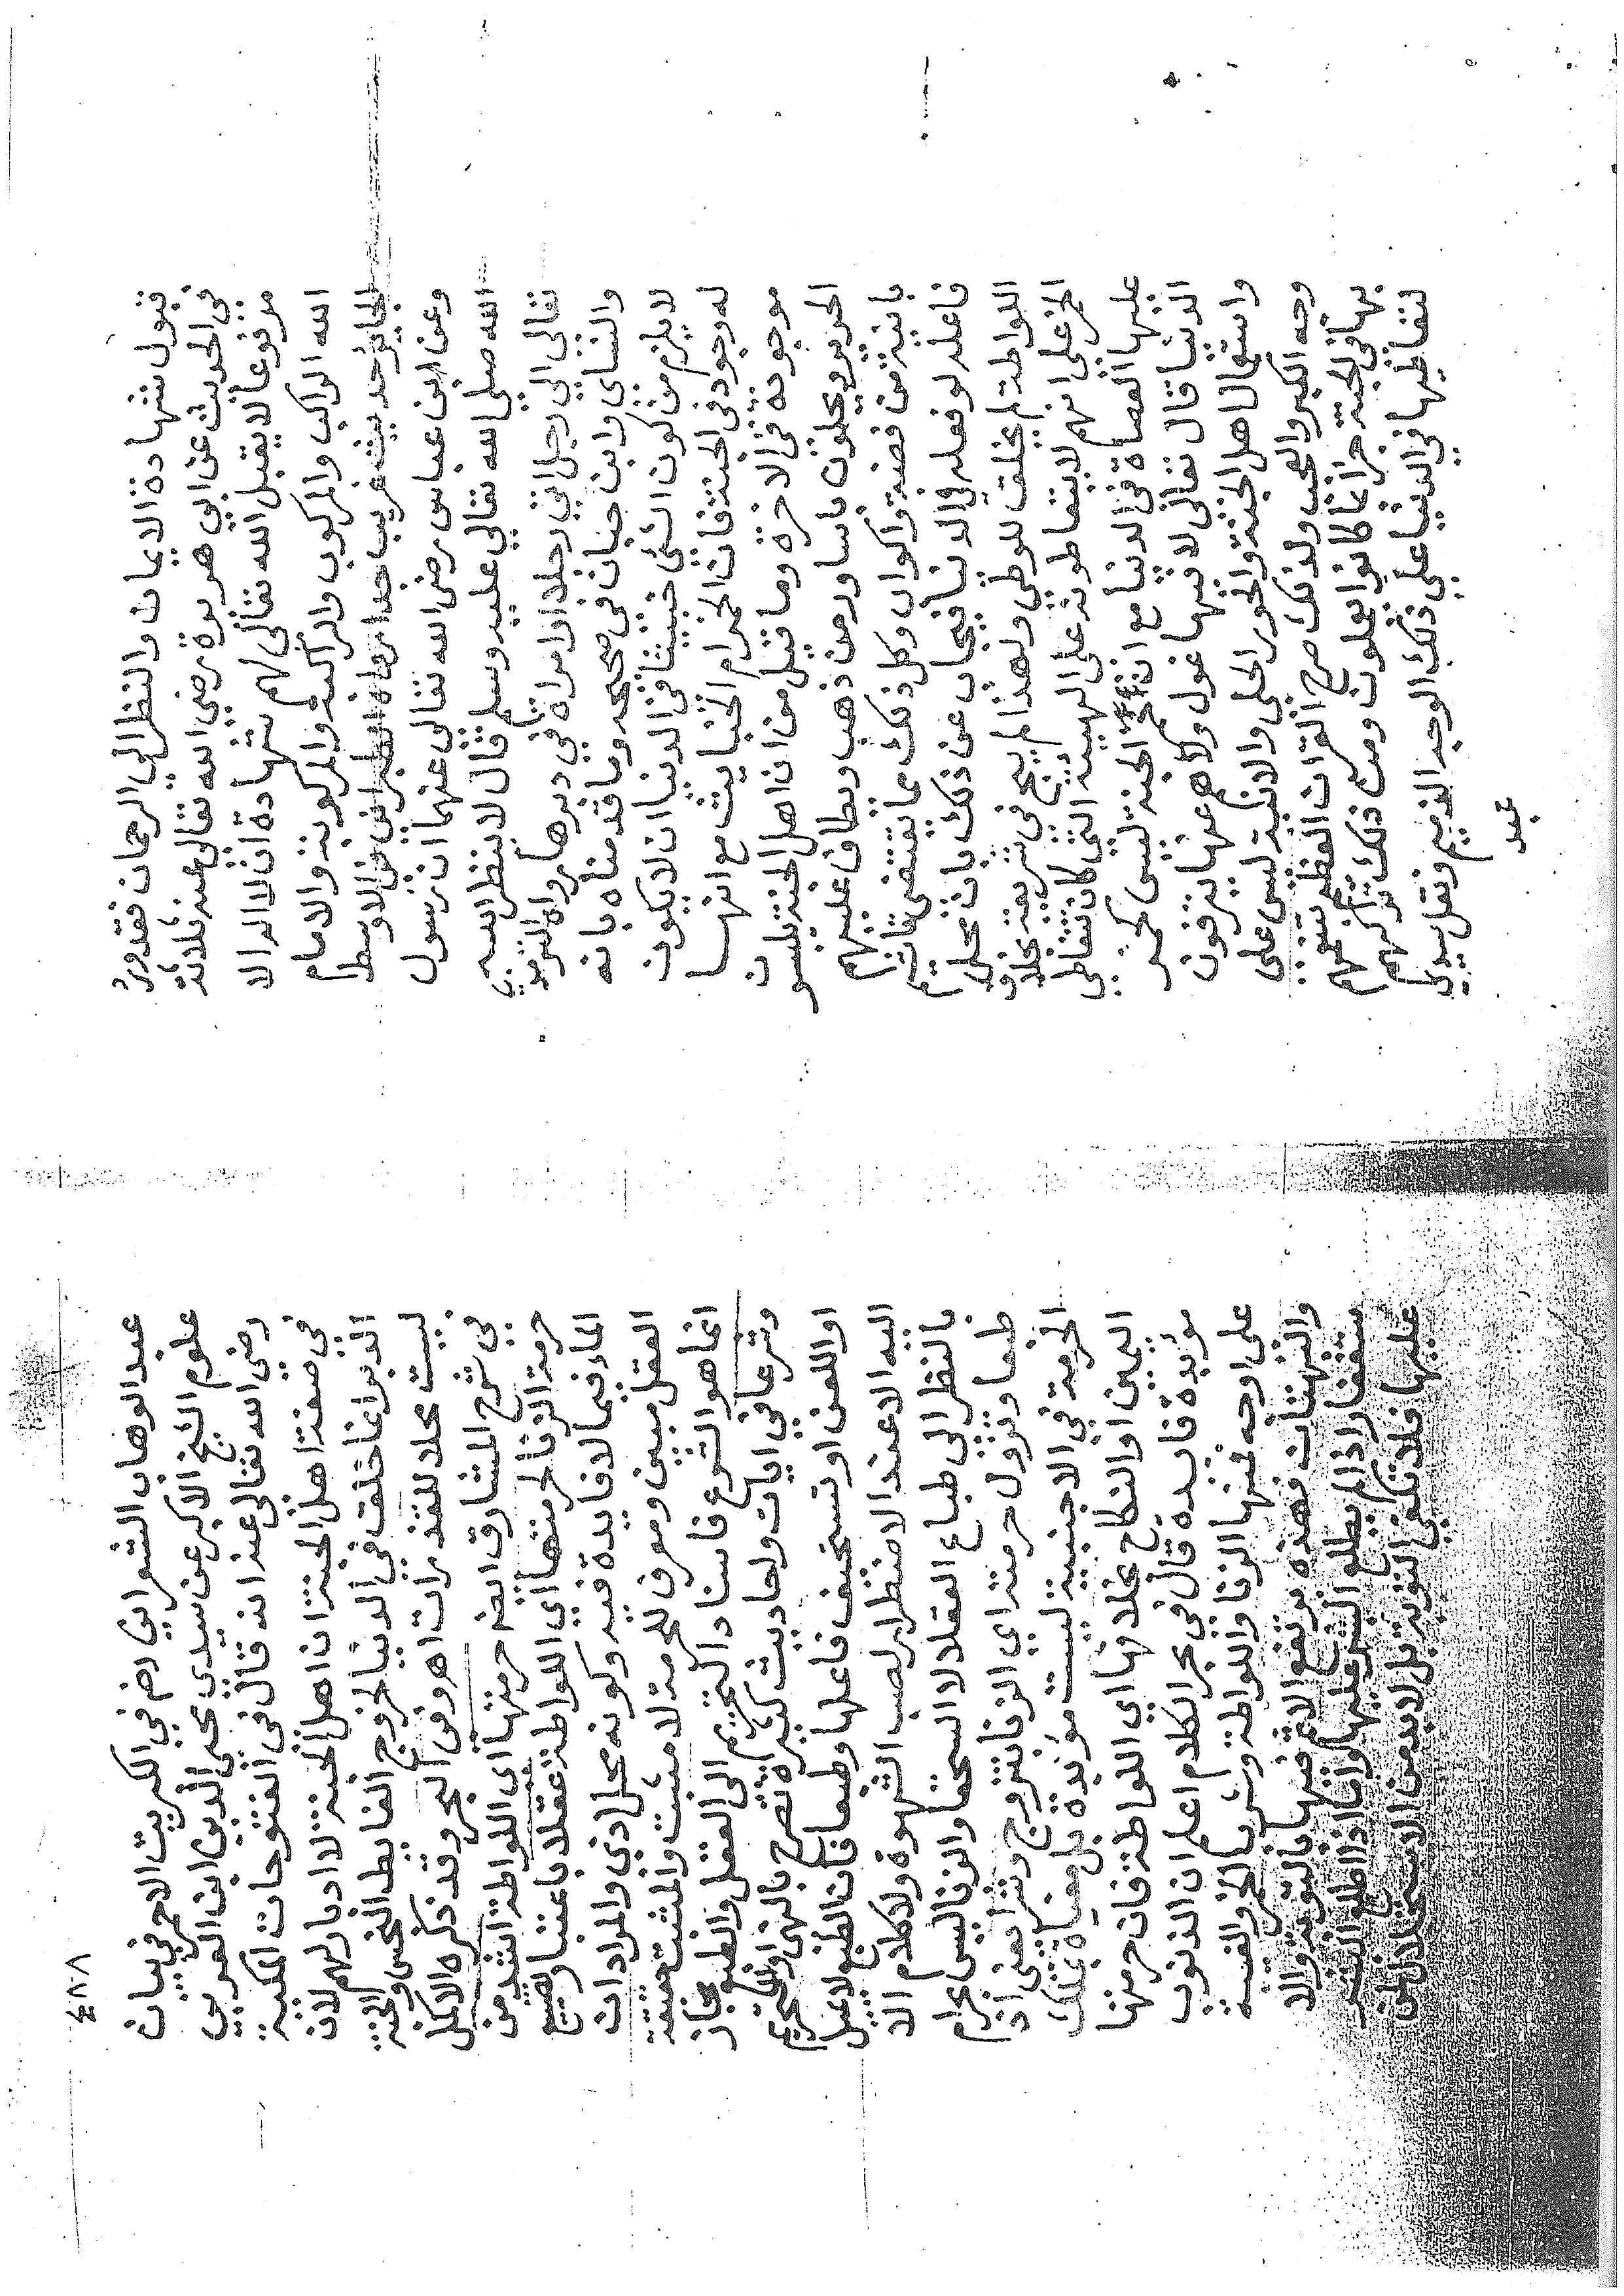 قبول شهادة الايمان والنظر الي الرحمان فقد ورد
في الحديث عن ابي هريرة رضي الله تعالى عنه ثلاثة
مرفوعا لا يقبل الله تعالى لهم شهادة ان لا اله الا
الله الراكب والمركوب والراكبة والمركوبة والامام
الجاير حديث غريب جدا رواه الطبراني في الاوسط
وعن ابن عباس رضي الله تعالى عنهما ان رسول
الله صلى الله تعالى عليه وسلم قال لا ينظر الله
تعالى الي رجل اتى رجلا او امراة في دبرها رواه الترمذي
والنساي وابن حبان في صحيحه وما قدمناه بانه
لا يلزم من كون الشئ خبيثا في الدنيا ان لا يكون
له وجود في الجنة فان الخمرام الخبايث مع انها
موجودة في الاخرة وما قيل من ان اهل الجنة يلبسون
الحرير ويحلون باساور من ذهب ويطاف عليهم
بانية من فضة واكواب وكل ذلك مما تقتضي تاثيم
فاعله لو فعله في الدنيا فيجاب عن ذلك بان محل
اللواطة لم يخلق للوطي ولهذا لم يبح في شريعة بخلاف
الخمر على انهم لا يتعاطونه على الهيئة التي كان تتعاطى
عليها العصاة في الدنيا مع ان خمر الجنة ليس كخمر
الدنيا قال تعالى لا فيها غول ولا هم عنها ينزفون
واستعمال اهل الجنة والحور الحلي والانية ليس على
وجه الكبر والعجب ولذلك صرح القران العظيم بتنعمهم
بها في الجنة جزاء بما كانوا يعملون ومن ذلك تركهم
لتعاطيها في الدنيا على ذلك الوجه الذميم ونقل سيدي
عبد
٤٨٨
عبد الوهاب الشعراني رضه في الكبريت الاحمر في بيان
علوم الشيخ الاكبر عن سيدي محيى الدين ابن العربي
رضي الله تعالى عنه انه قال في الفتوحات المكية
في صفة اهل الجنة ان اهل الجنة لا ادبار لهم لان
الدبر انما خلق في الدنيا لخروج الغايط النجس والجنة
ليست محلا للقذرات اهـ وفي البحر وقد ذكره الاكمل
في شرح المشارق ايضه حرمتها اى اللواطة اشد من
حرمة الزنا لحرمتها اي اللواطة عقلا باعتبار تضييع
الماء فيما لا فايدة فيه وكونه محل اذى والمراد ان
العقل مبين ومعرف للحرمة لا مثبت والمثبت حقيقة
انما هو الشرع فاسناد التحريم الى العقل والطبع مجاز
وشرعا في ايات واحاديث كثيرة تصرح بالنهي والتحريم
او اللعن او تسخيف فاعلها وطبعا فان الطبع لا يميل
اليه الا عند الاضطرار لصب الشهوة ولا كلام الا
بالنظر الى طباع العقلا لا السخفا والزنا ليس بحرام
طبعا وتزول حرمته اي الزنا بتزوج وشراء يعني ان
الحرمة في الاجنبية ليست مؤبدة بل مغياة بملك
اليمين او النكاح بخلافها اي اللواطة فان حرمتها
مؤبدة فايدة قال في بحر الكلام اعلم ان الذنوب
على اوجه فمنها الزنا واللواطة وشرب الخمر والغيبة
والبهتان فهذه يرتفع الاثم فيها بالتوبة والا
ستغفار اذا لم يطلع البشر عليها واما اذا اطلع البشر
عليها فلا تكفي التوبة بل لا بد من الاستحلال لمن